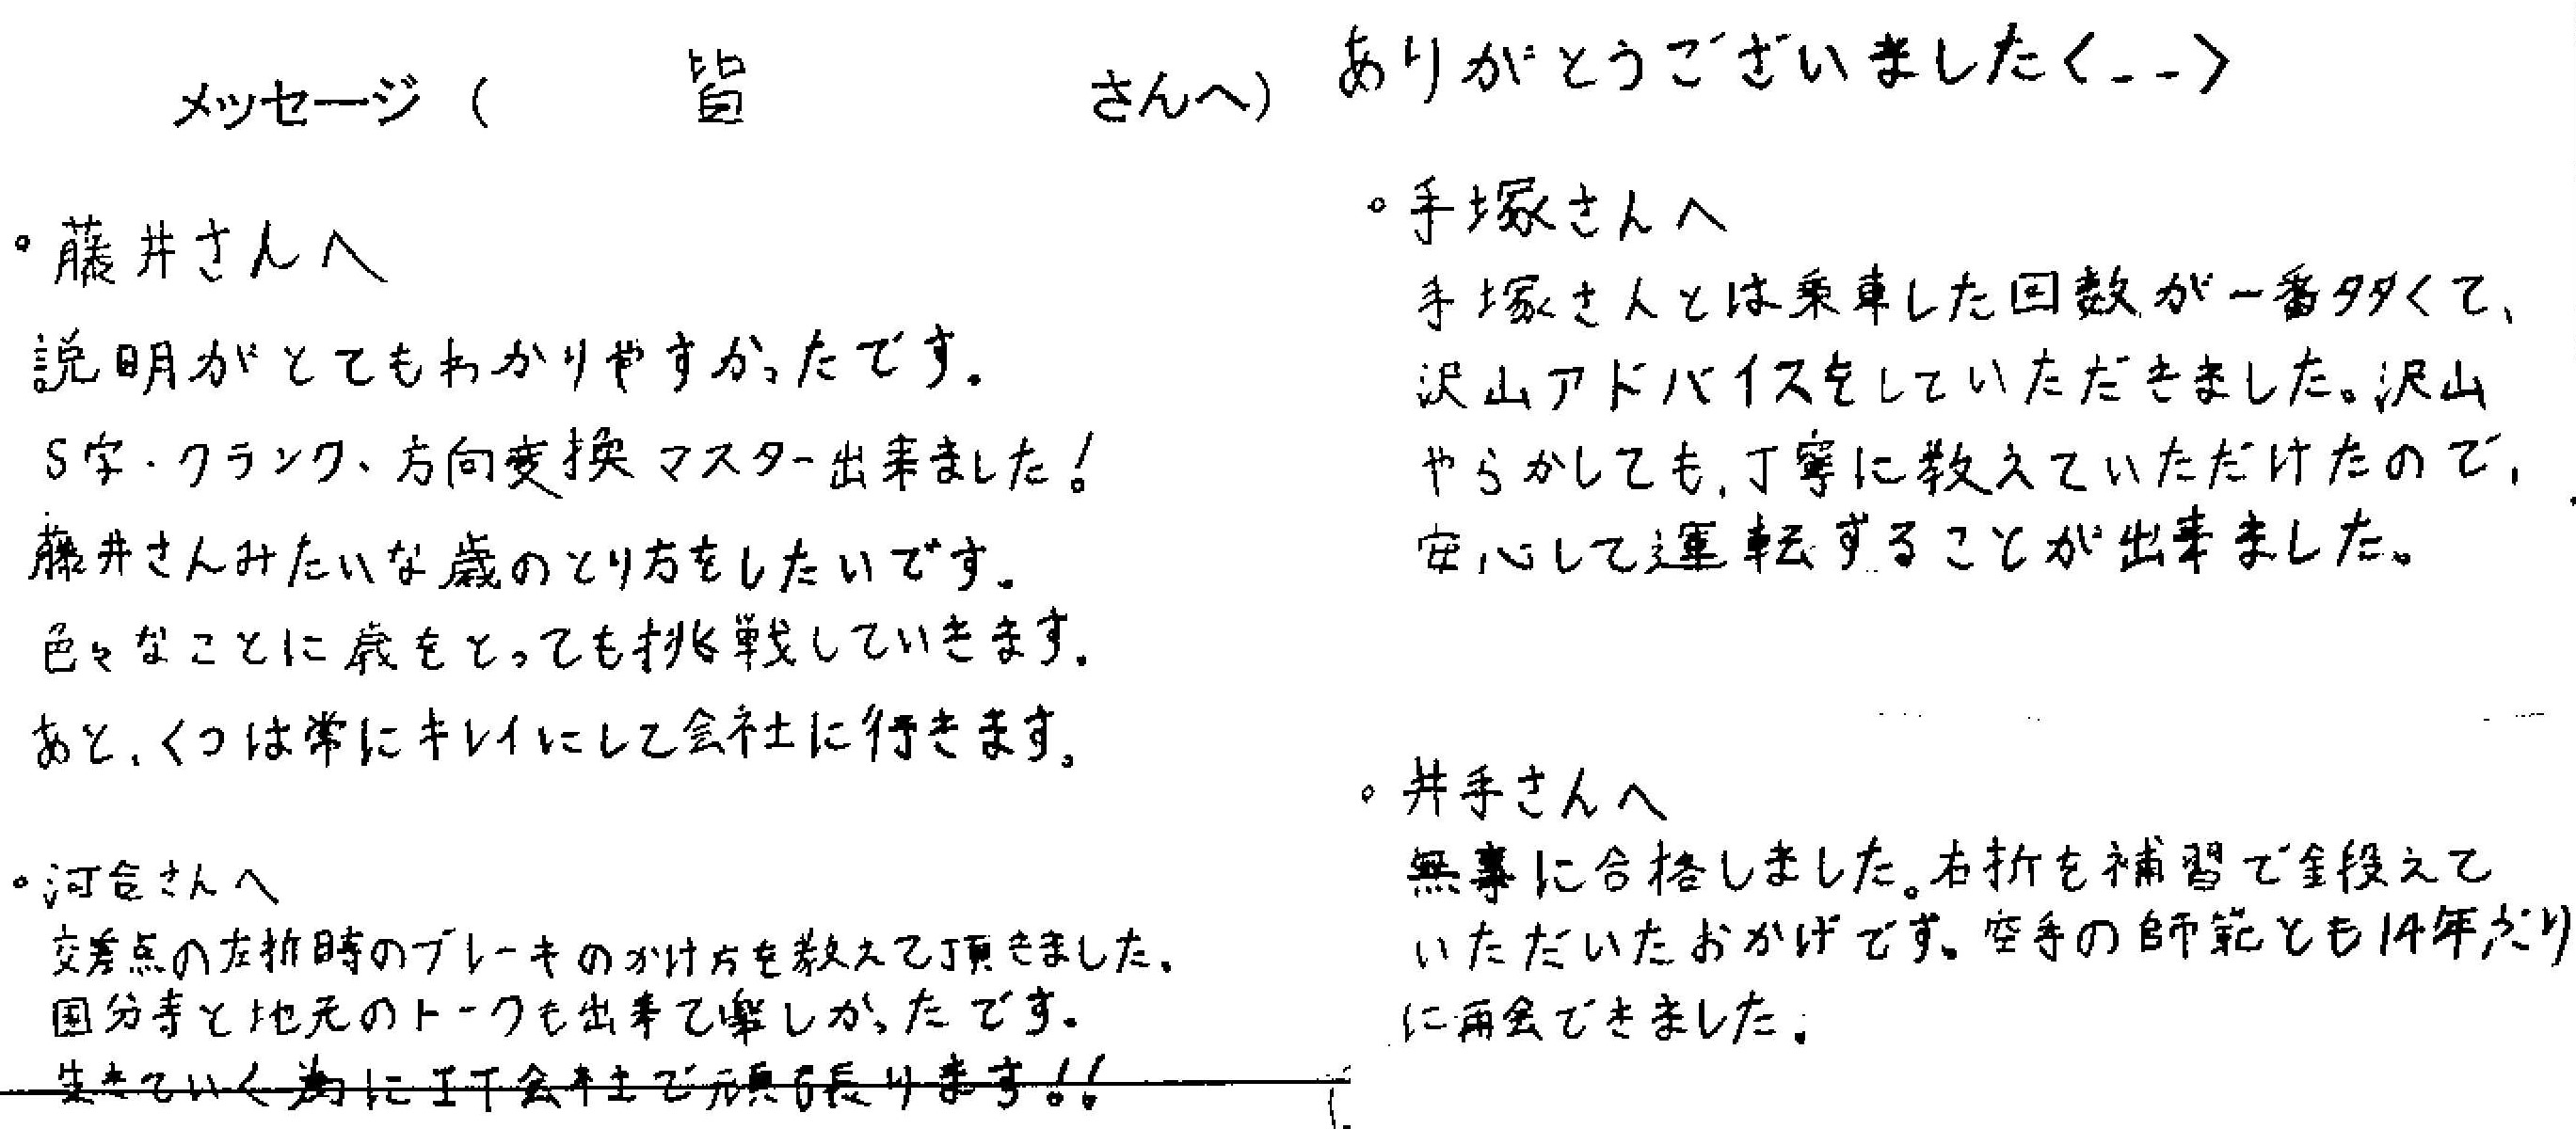 メッセージ（ 皆 さんへ）
。藤井さんへ
説明がとてもわかりやすかったです。
S字・クランク、方向変換マスター出来ました!
藤井さんみたいな歳のとり方をしたいです。
色々なことに歳をとっても挑戦していきます。
あと、くつは常にキレイにして会社に行きます。
。河合さんへ
交差点の左折時のブレーキのかけ方を教えて頂きました。
国分寺と地元のトークも出来て楽しかったです。
生きていく為にIT会社で頑張ります!!
ありがとうございました<_ _>
。手塚さんへ
手塚さんとは乗車した回数が一番多くて、
沢山アドバイスをしていただきました。沢山
やらかしても、丁寧に教えていただけたので、
安心して運転することが出来ました。
。井手さんへ
無事に合格しました。右折を補習で鍛えて
いただいたおかげです。空手の師範とも14年ぶり
に再会できました。